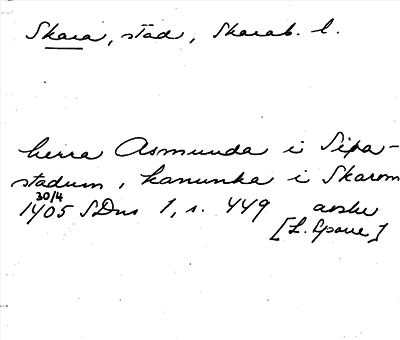 Skara, stad, Skarab. l.
herra Asmunda i Sipa-
stadum, kanunka i Skarom
30/4
1405 SDns 1, s. 449 avskr
[L. Spore]